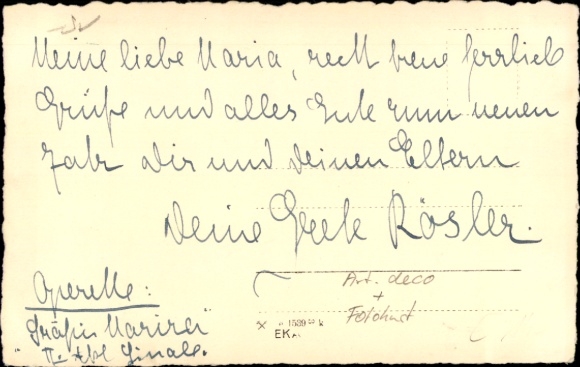 Meine liebe Maria, recht herzlich
Grüße und alles Gute zum neuen
Jahr Dir und Deinen Eltern
Deine Grete Rösler.
Operette:
Gräfin Mariza
II. Akt Finale.
Art. deco
+
1539
EKA